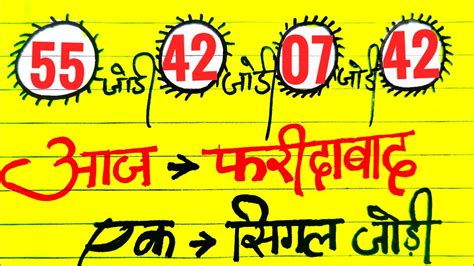 55 जोडी 42 जोडी 07 जोडी 42
आज → फरीदाबाद
एक → सिगल जोडी